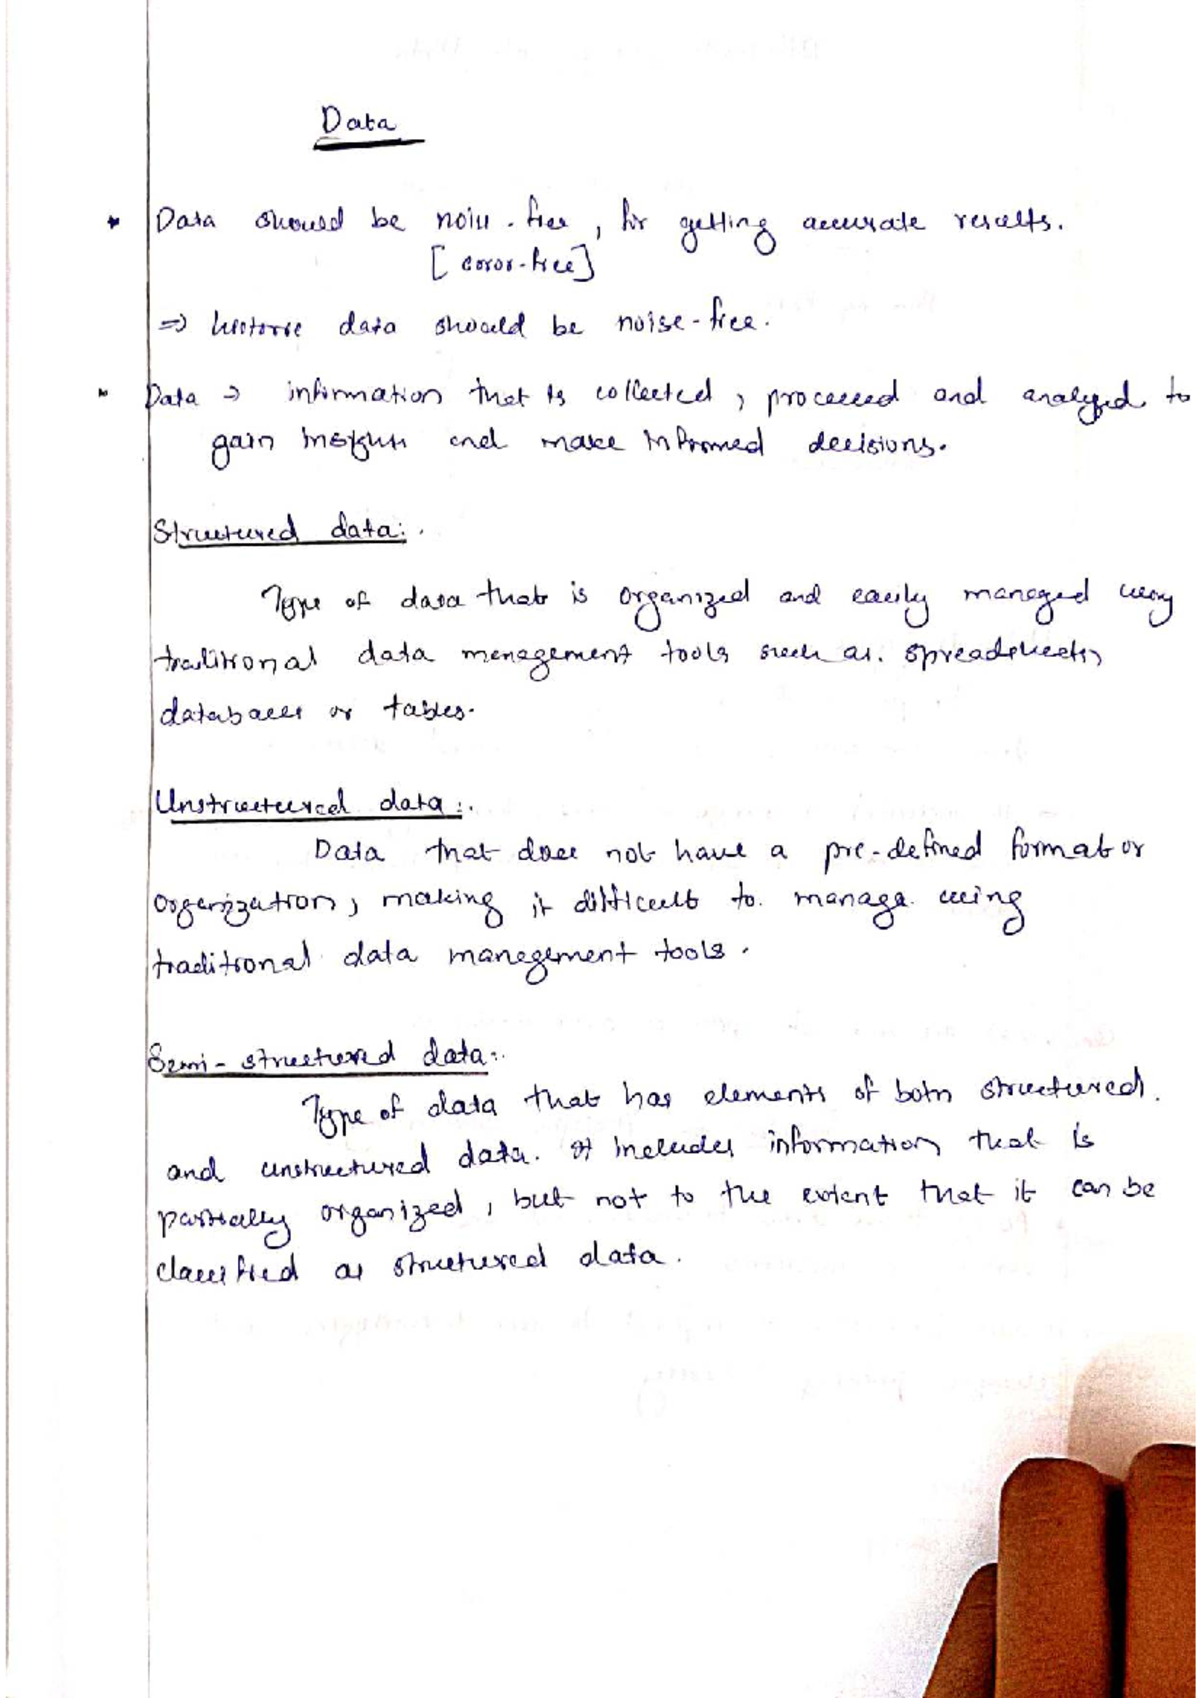 Data
* Data should be noise-free, for getting accurate results.
[error-free]
⇒ historic data should be noise-free.
* Data → information that is collected, processed and analyzed to
gain insights and make informed decisions.
Structured data:.
Type of data that is organized and easily managed using
traditional data management tools such as spreadsheets,
databases or tables.
Unstructured data:.
Data that does not have a pre-defined format or
organization, making it difficult to manage using
traditional data management tools.
Semi-structured data:.
Type of data that has elements of both structured.
and unstructured data. It includes information that is
partially organized, but not to the extent that it can be
classified as structured data.